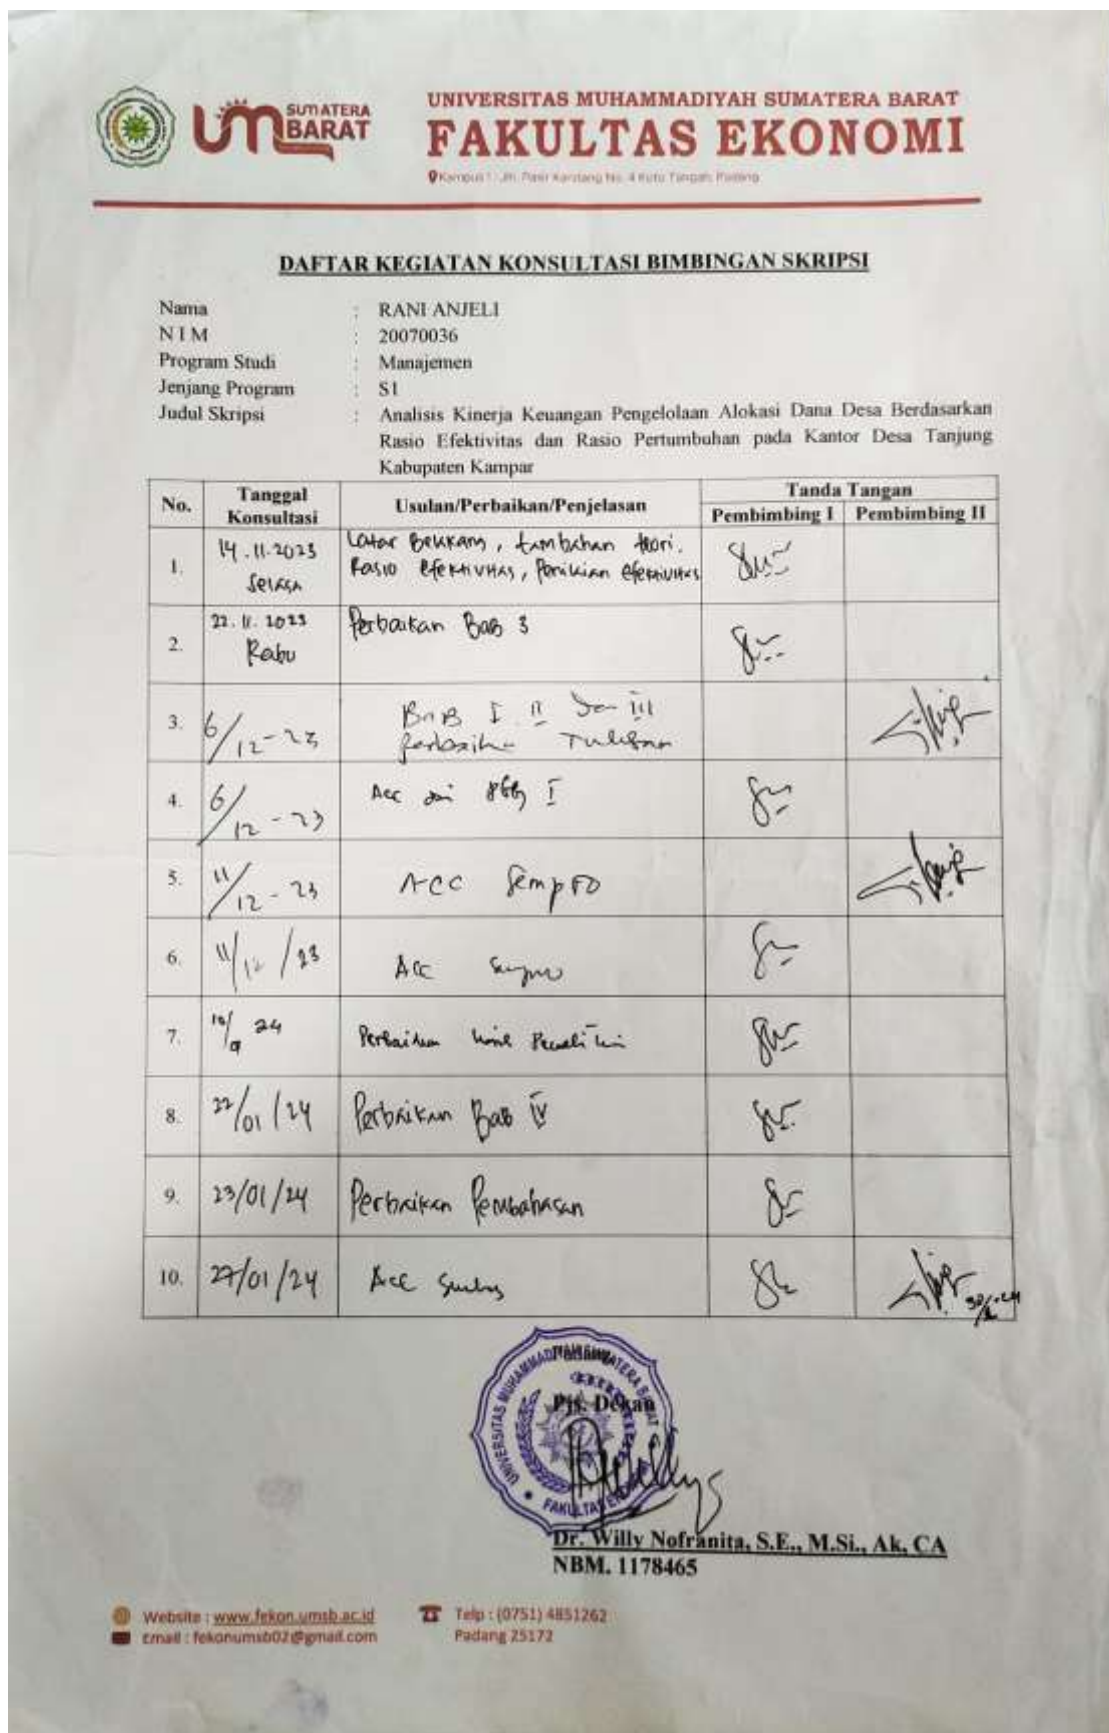 UM SUMATERA BARAT
UNIVERSITAS MUHAMMADIYAH SUMATERA BARAT
FAKULTAS EKONOMI
Kampus 1 : Jln. Pasir Kandang No. 4 Koto Tangah, Padang
DAFTAR KEGIATAN KONSULTASI BIMBINGAN SKRIPSI
Nama : RANI ANJELI
N I M : 20070036
Program Studi : Manajemen
Jenjang Program : S1
Judul Skripsi : Analisis Kinerja Keuangan Pengelolaan Alokasi Dana Desa Berdasarkan
Rasio Efektivitas dan Rasio Pertumbuhan pada Kantor Desa Tanjung
Kabupaten Kampar
No. Tanggal Konsultasi Usulan/Perbaikan/Penjelasan Tanda Tangan
Pembimbing I Pembimbing II
1. 14.11.2023 Selasa Latar Belakang, tambahan teori.
Rasio efektivitas, Penilaian efektivitas
2. 22.11.2023 Rabu Perbaikan Bab 3
3. 6/12-23 BAB I II dan III
perbaiki Tulisan
4. 6/12-23 Acc I
5. 11/12-23 ACC Sempro
6. 11/12/23 Acc Sempro
7. 24 Perbaikan hasil Penelitian
8. 22/01/24 Perbaikan Bab IV
9. 23/01/24 Perbaikan Pembahasan
10. 27/01/24 Acc
UNIVERSITAS MUHAMMADIYAH SUMATERA BARAT
FAKULTAS EKONOMI
Pjs. Dekan
Dr. Willy Nofranita, S.E., M.Si., Ak, CA
NBM. 1178465
Website : www.fekon.umsb.ac.id Telp : (0751) 4851262
Email : fekonumsb02@gmail.com Padang 25172